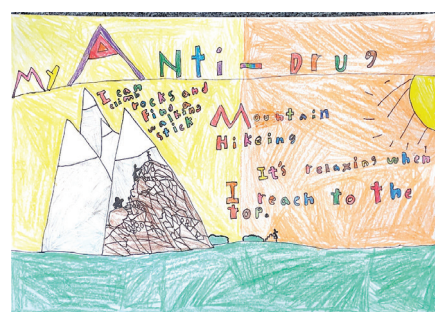 My Anti-Drug
I can
climb
rocks and
find a
walking
stick
Mountain
Hikeing
It's relaxing when
I reach to the
top.